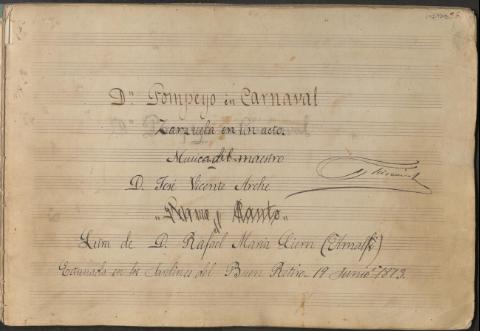 Dn Pompeyo en Carnaval
Zarzuela en un acto.
Música del maestro
D. José Vicente Arche
Letra de D. Rafael Maria Liern (Amalfi)
Estrenada en los Jardines del Buen Retiro 19 Junio 1873.